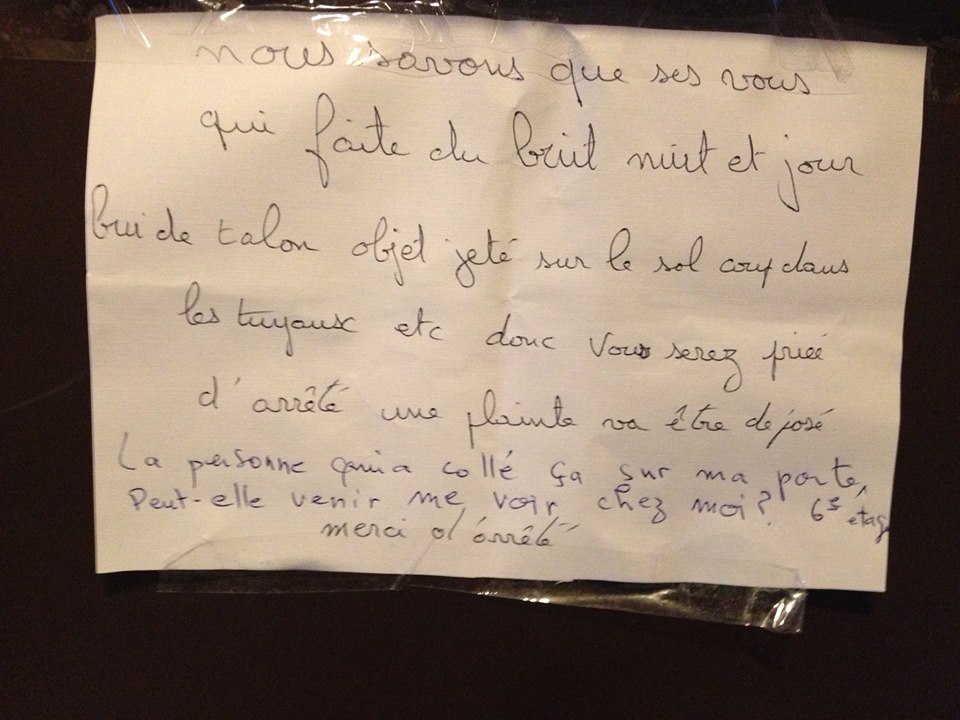 nous savons que ses vous
qui faite du bruit nuit et jour
brui de talon objet jeté sur le sol coup dans
les tuyaux etc donc vous serez priéé
d'arrêté une plainte va être déposé
La personne qui a collé ça sur ma porte,
Peut-elle venir me voir chez moi? 6e étage
merci d'arrêté